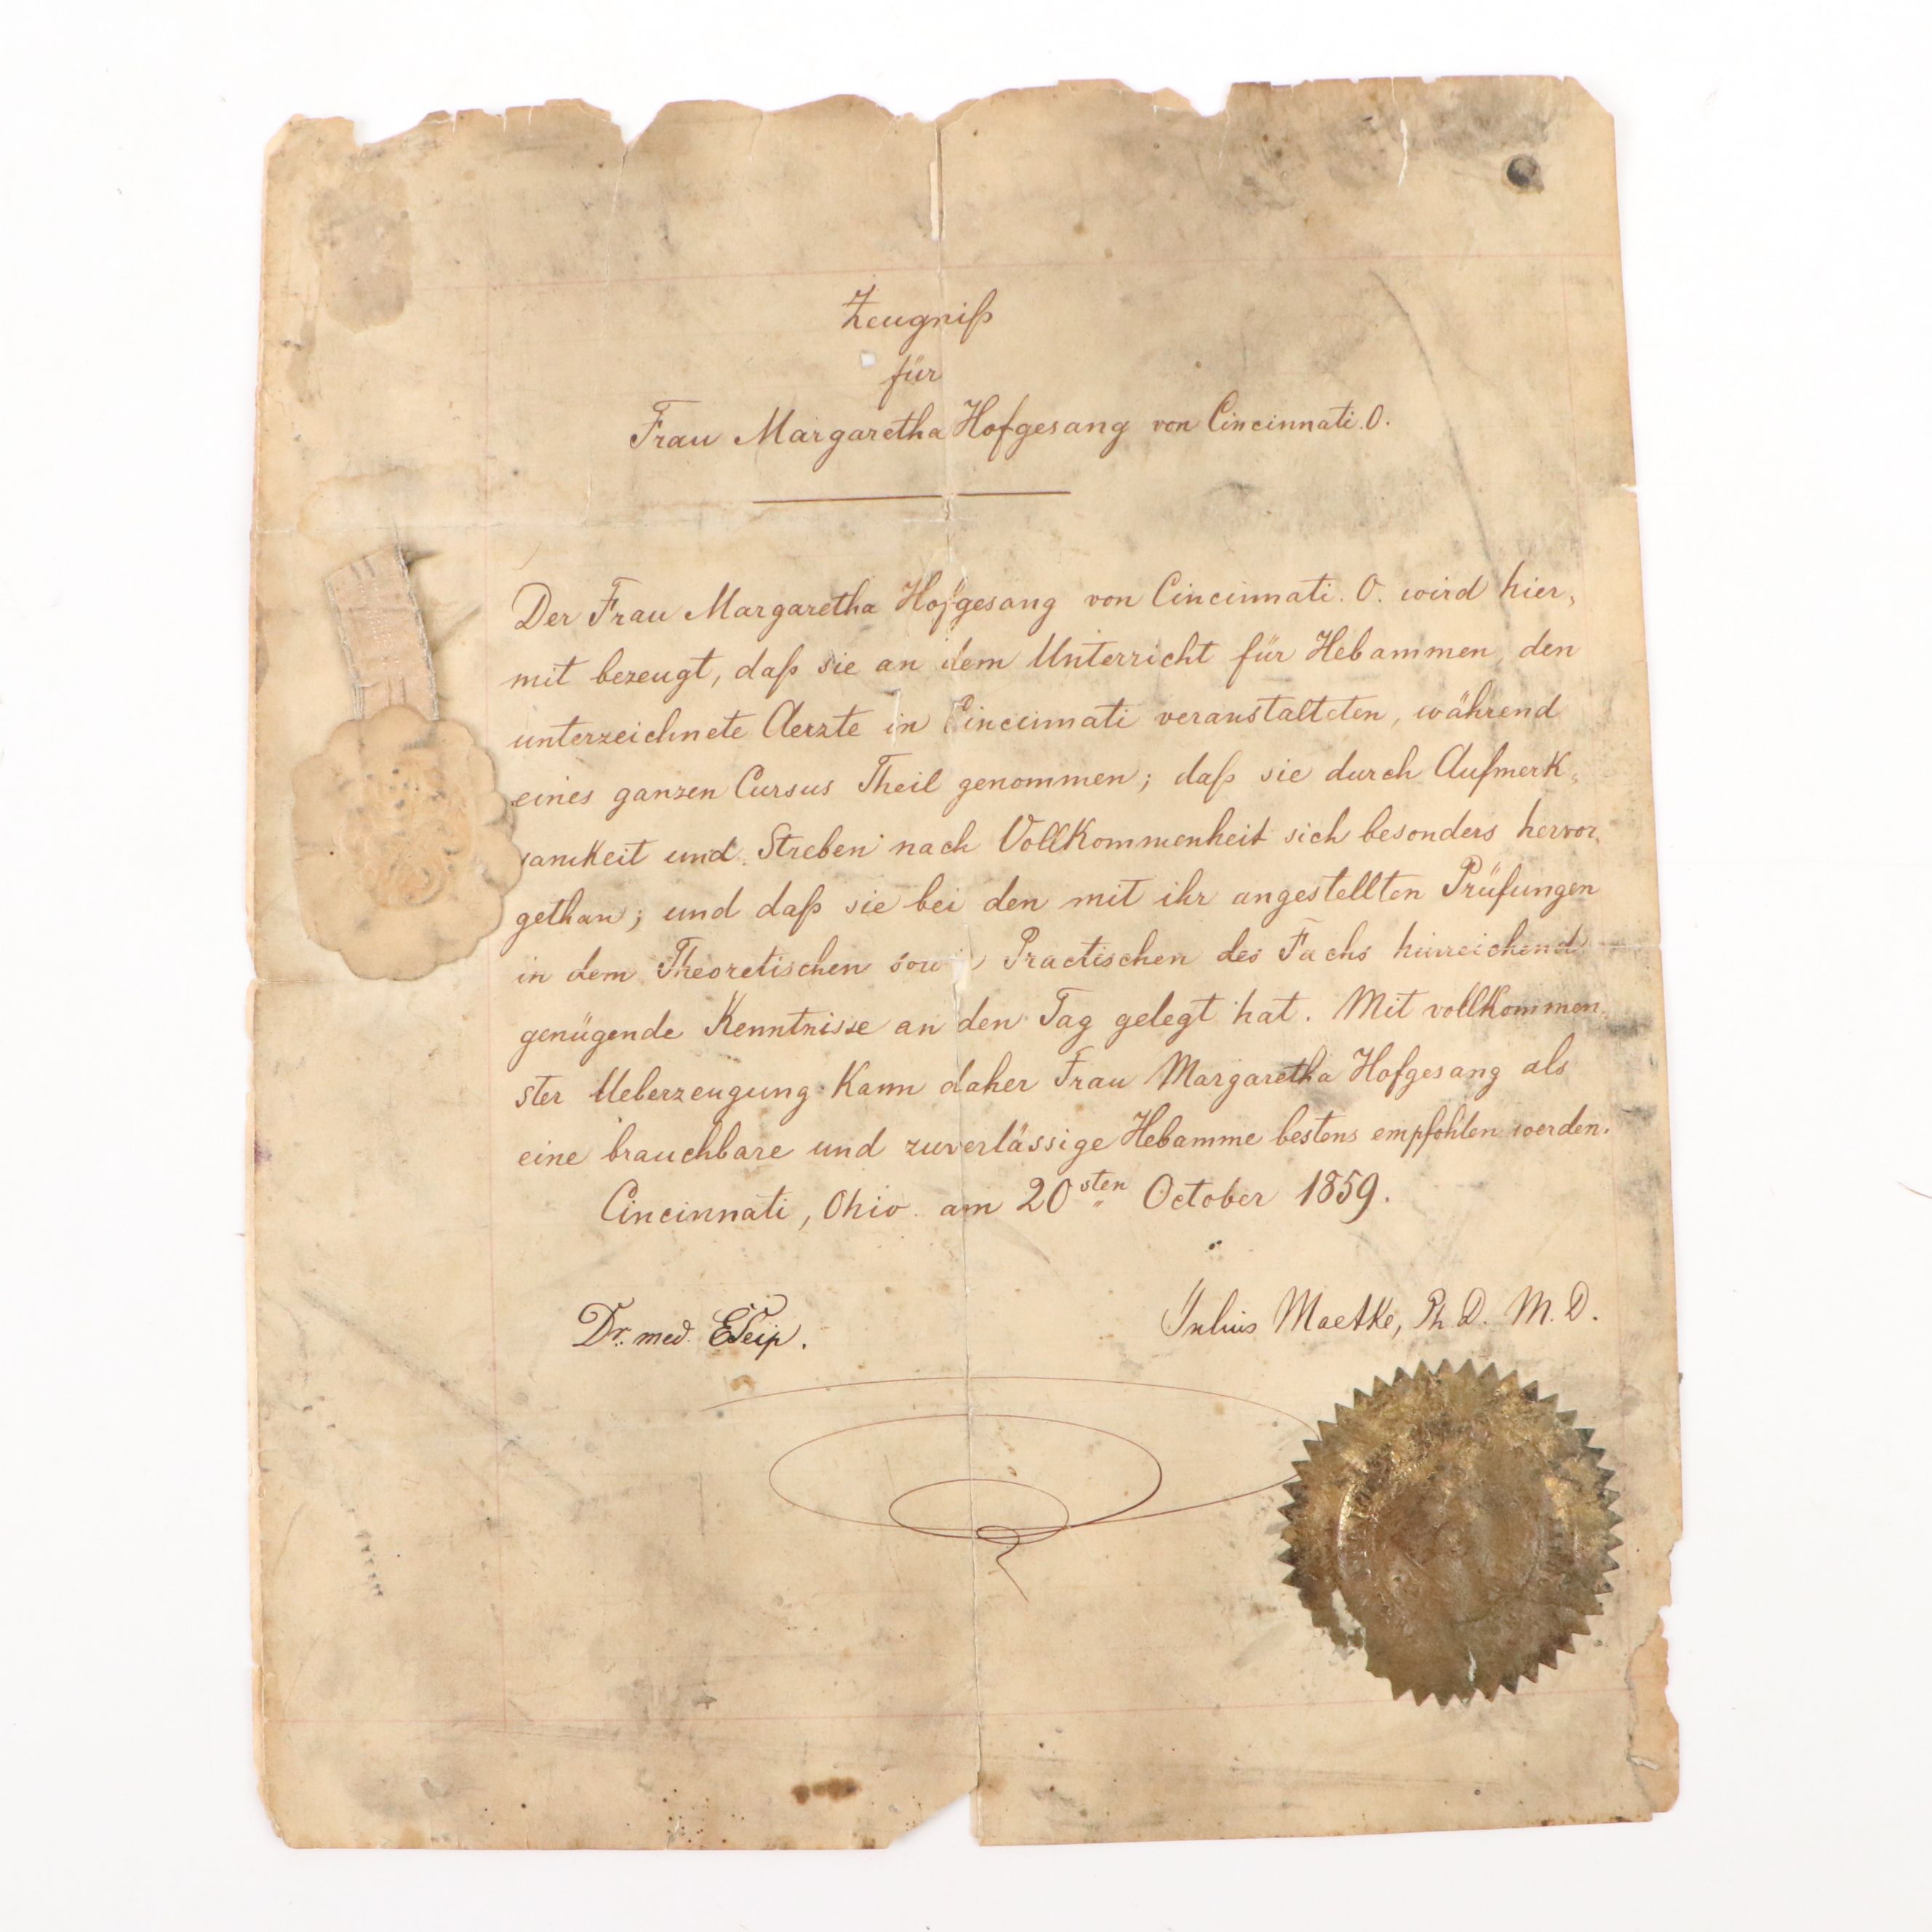 Zeugniß
für
Frau Margaretha Hofgesang von Cincinnati. O.
Der Frau Margaretha Hofgesang von Cincinnati. O. wird hier,
mit bezeugt, daß sie an dem Unterricht für Hebammen, den
unterzeichnete Aerzte in Cincinnati veranstalteten, während
eines ganzen Cursus Theil genommen; daß sie durch Aufmerk,
samkeit und Streben nach Vollkommenheit sich besonders hervor,
gethan; und daß sie bei den mit ihr angestellten Prüfungen
in dem Theoretischen sowie Practischen des Fachs hinreichend
genügende Kenntnisse an den Tag gelegt hat. Mit vollkommen,
ster Ueberzeugung kann daher Frau Margaretha Hofgesang als
eine brauchbare und zuverlässige Hebamme bestens empfohlen werden.
Cincinnati, Ohio. am 20sten October 1859.
Dr. med. Julius Maetke, Ph. D. M. D.